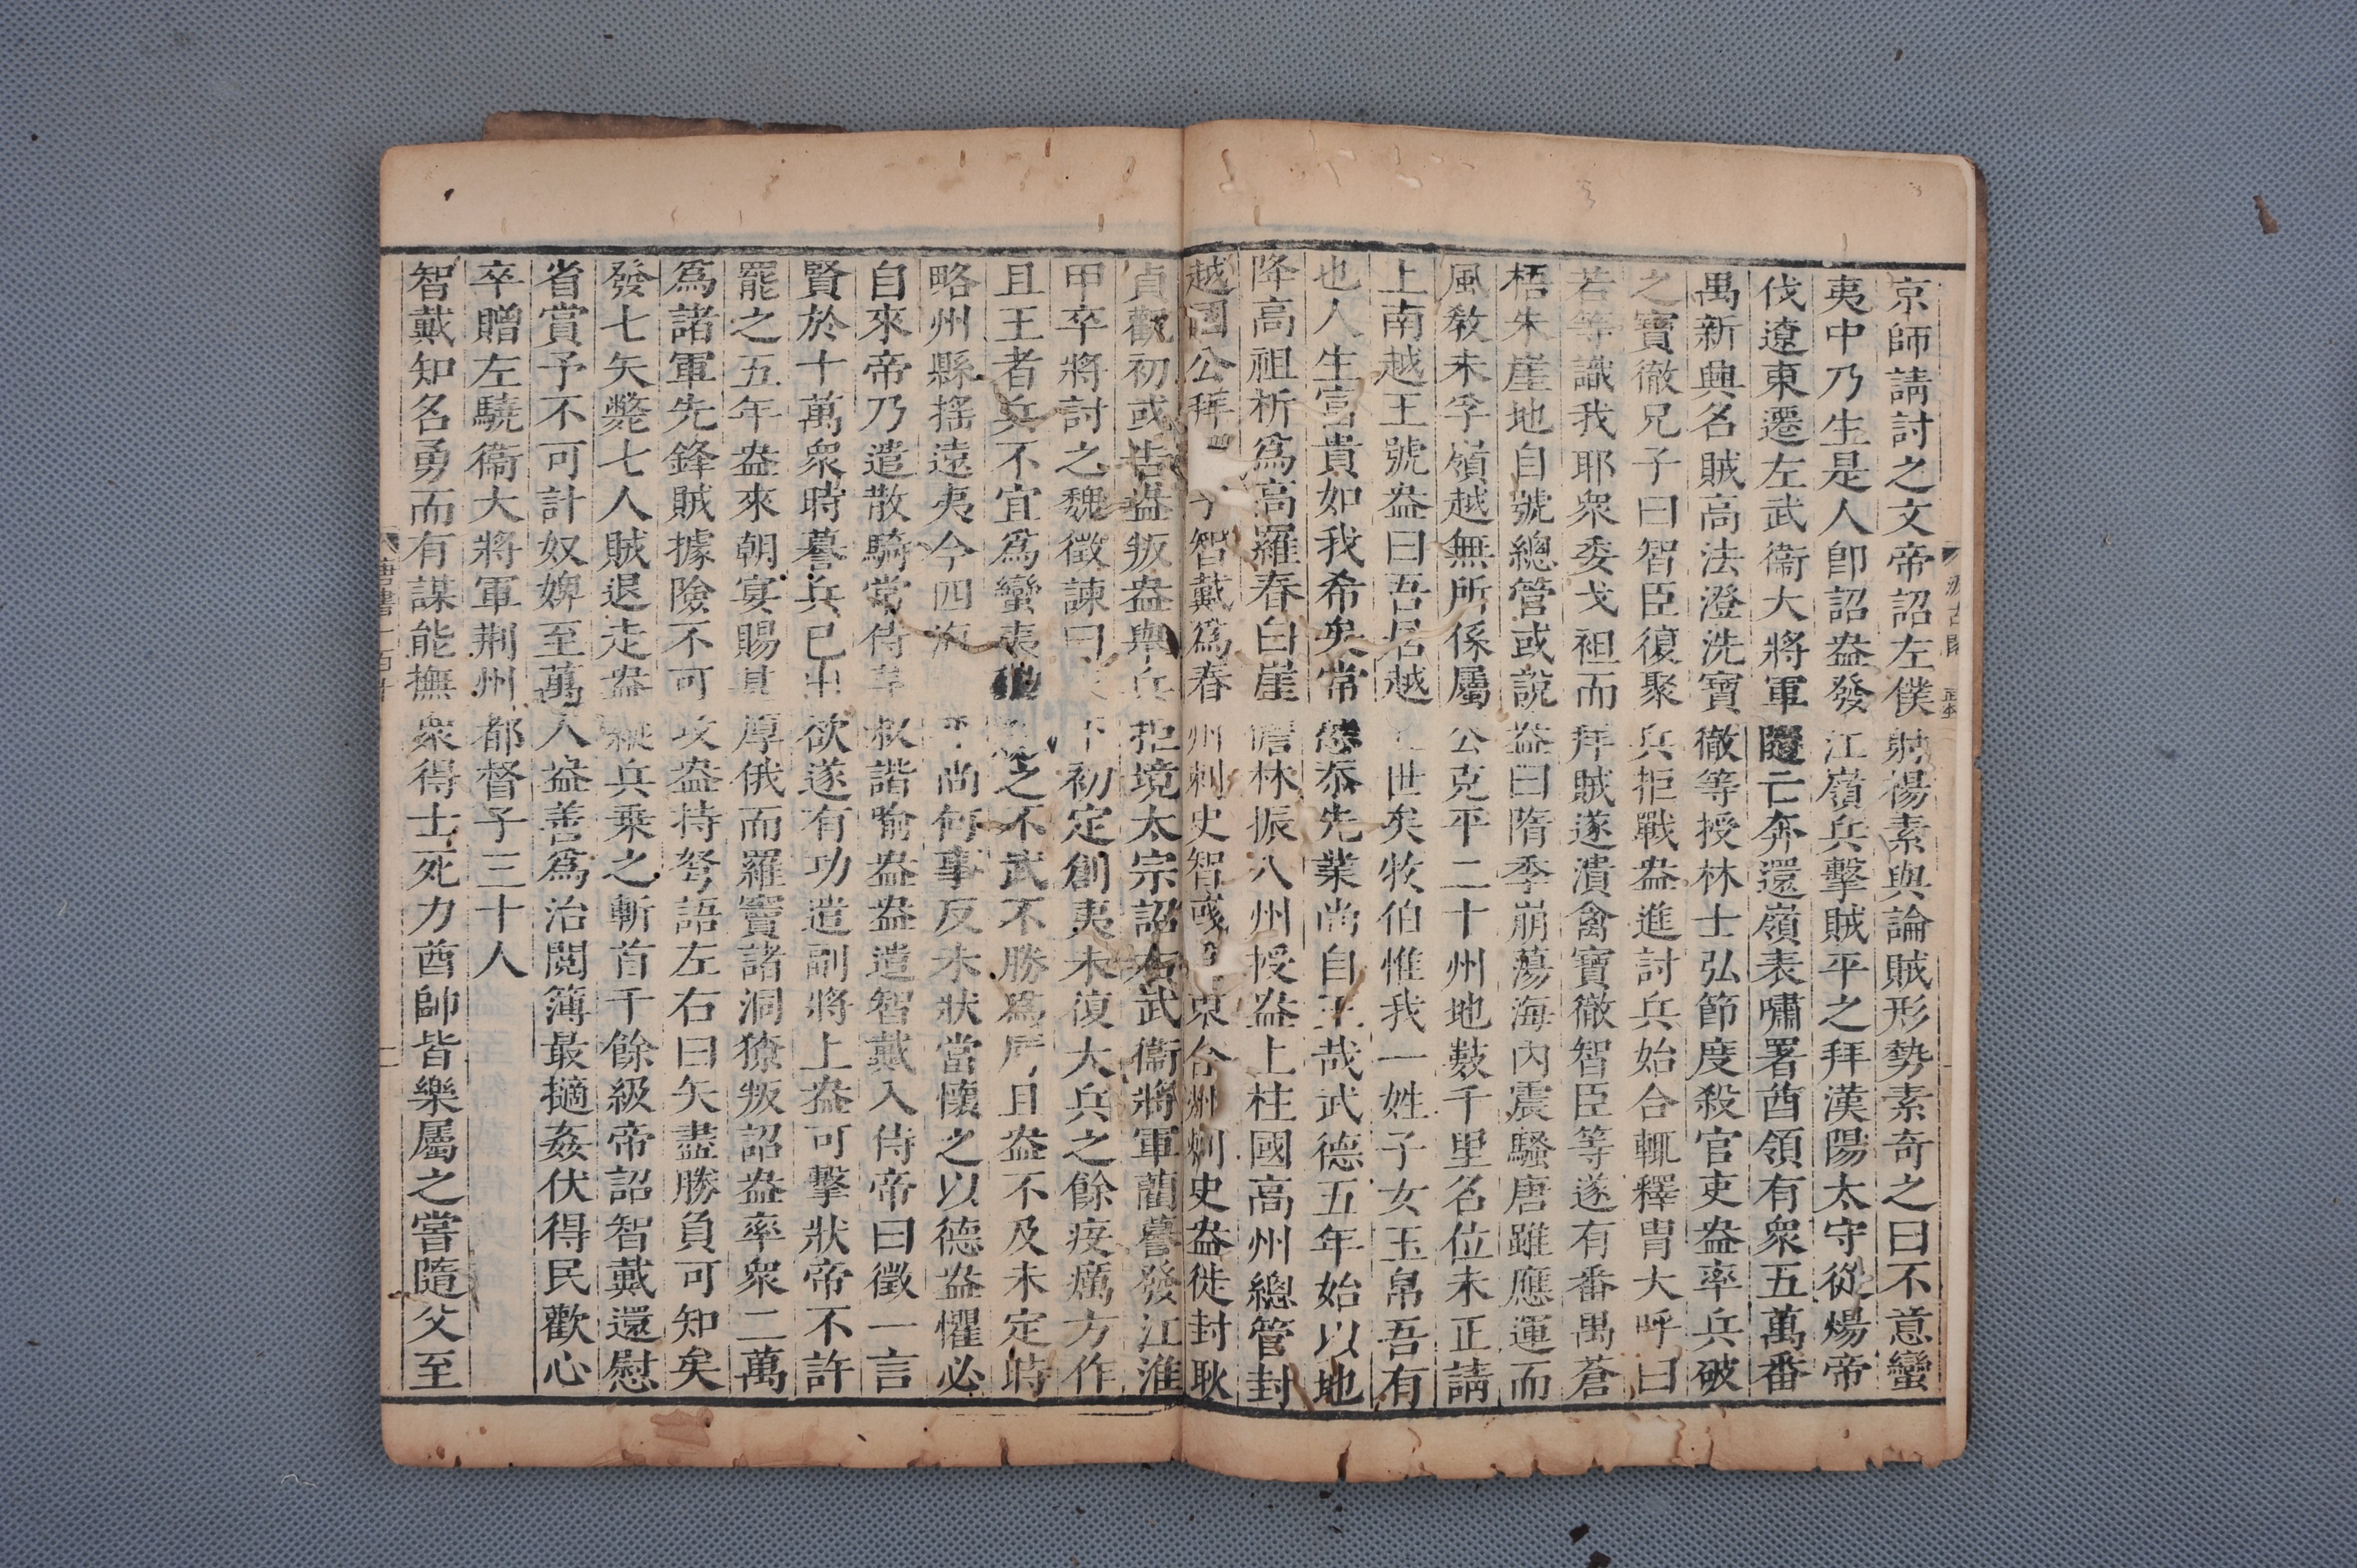 汲古閣
正本
京師請討之文帝詔左僕射楊素與論賊形勢素奇之曰不意蠻
夷中乃生是人卽詔盎發江嶺兵擊賊平之拜漢陽太守從煬帝
伐遼東遷左武衞大將軍隨亡奔還嶺表嘯署酋領有衆五萬番
禺新興名賊高法澄洗寶徹等授林士弘節度殺官吏盎率兵破
之寶徹兄子曰智臣復聚兵拒戰盎進討兵始合輒釋胄大呼曰
若等識我耶衆委戈袒而拜賊遂潰禽寶徹智臣等遂有番禺蒼
梧朱崖地自號總管或說盎曰隋季崩蕩海內震騷唐雖應運而
風敎未孚嶺越無所係屬公克平二十州地數千里名位未正請
上南越王號盎曰吾居越世矣牧伯惟我一姓子女玉帛吾有
也人生富貴如我希矣常恐忝先業尚自王哉武德五年始以地
降高祖析爲高羅春白崖儋林振八州授盎上柱國高州總管封
越國公拜子智戴爲春州刺史智彧東合州刺史盎徙封耿
貞觀初或告盎叛盎與兵拒境太宗詔右武衞將軍藺謩發江淮
甲卒將討之魏徵諫曰下初定創夷未復大兵之餘疫癘方作
且王者兵不宜爲蠻夷之不武不勝爲辱且盎不及未定時
略州縣搖遠夷今四海尚何事反未狀當懷之以德盎懼必
自來帝乃遣散騎常侍韋叔諧喻盎盎遣智戴入侍帝曰徵一言
賢於十萬衆時謩兵已出欲遂有功遣副將上盎可擊狀帝不許
罷之五年盎來朝宴賜甚厚俄而羅竇諸洞獠叛詔盎率衆二萬
爲諸軍先鋒賊據險不可攻盎持弩語左右曰矢盡勝負可知矣
發七矢斃七人賊退走盎縱兵乗之斬首千餘級帝詔智戴還慰
省賞予不可計奴婢至萬人盎善爲治閱簿最擿姦伏得民歡心
卒贈左驍衞大將軍荆州都督子三十人
智戴知名勇而有謀能撫衆得士死力酋帥皆樂屬之嘗隨父至
唐書一百十
二